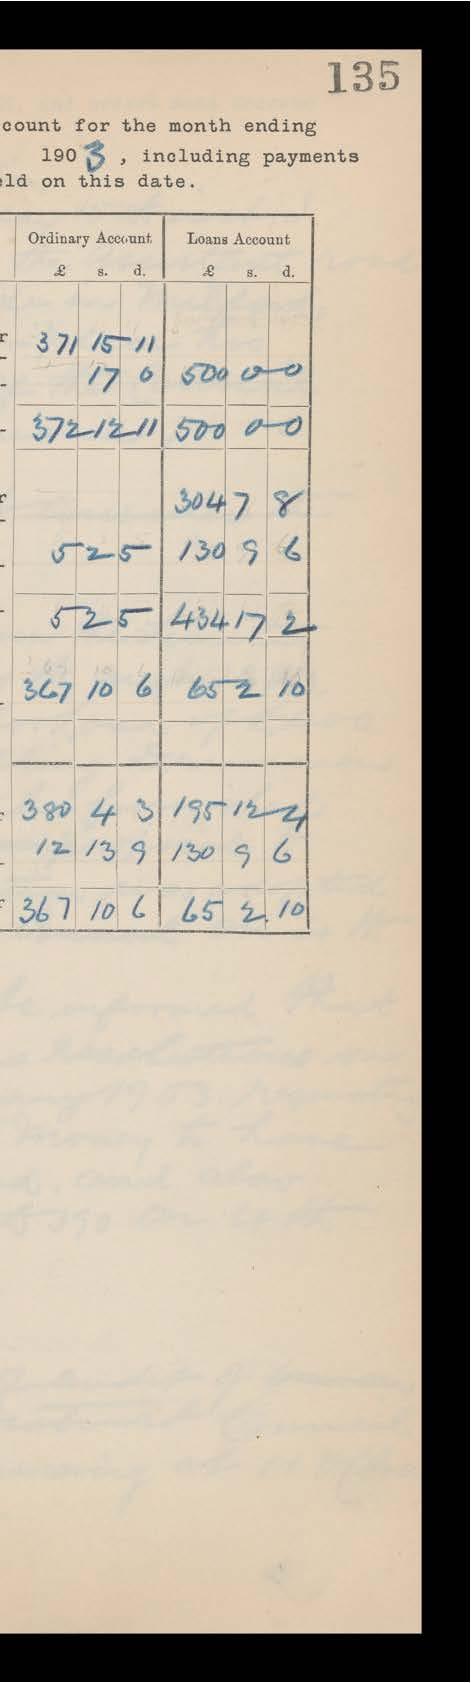 135
count for the month ending
1903, including payments
eld on this date.
Ordinary Account Loans Account
£ s. d. £ s. d.
r 371 15 11
17 0 500 0 0
372 12 11 500 0 0
r 304 7 8
5 2 5 130 9 6
5 2 5 434 17 2
367 10 6 65 2 10
r 380 4 3 195 12 4
12 13 9 130 9 6
r 367 10 6 65 2 10